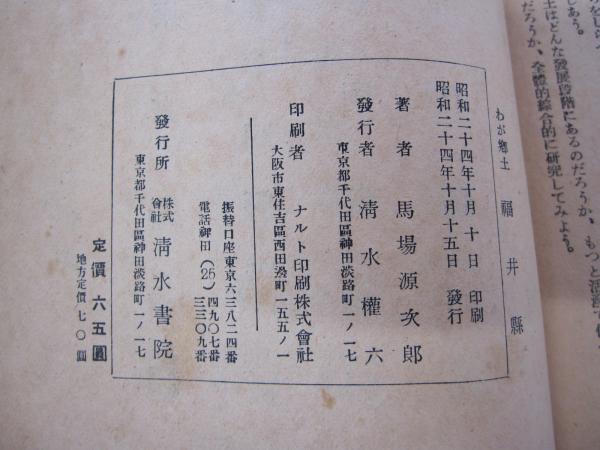 をしらべ
しあう。
土はどんな發展段階にあるのだろうか、もつと
だろうか、全體的綜合的に研究してみよう。
わが郷土 福井縣
昭和二十四年十月 十日 印刷
昭和二十四年十月十五日 發行
著者 馬場源次郎
發行者 淸水權六
東京都千代田區神田淡路町一ノ一七
印刷者 ナルト印刷株式會社
大阪市東住吉區西田邊町一五五ノ一
振替口座東京六三八二四番
電話神田(25)四九〇七番
三三〇九番
發行所 株式會社 淸水書院
東京都千代田區神田淡路町一ノ一七
定價 六五圓
地方定價七〇圓